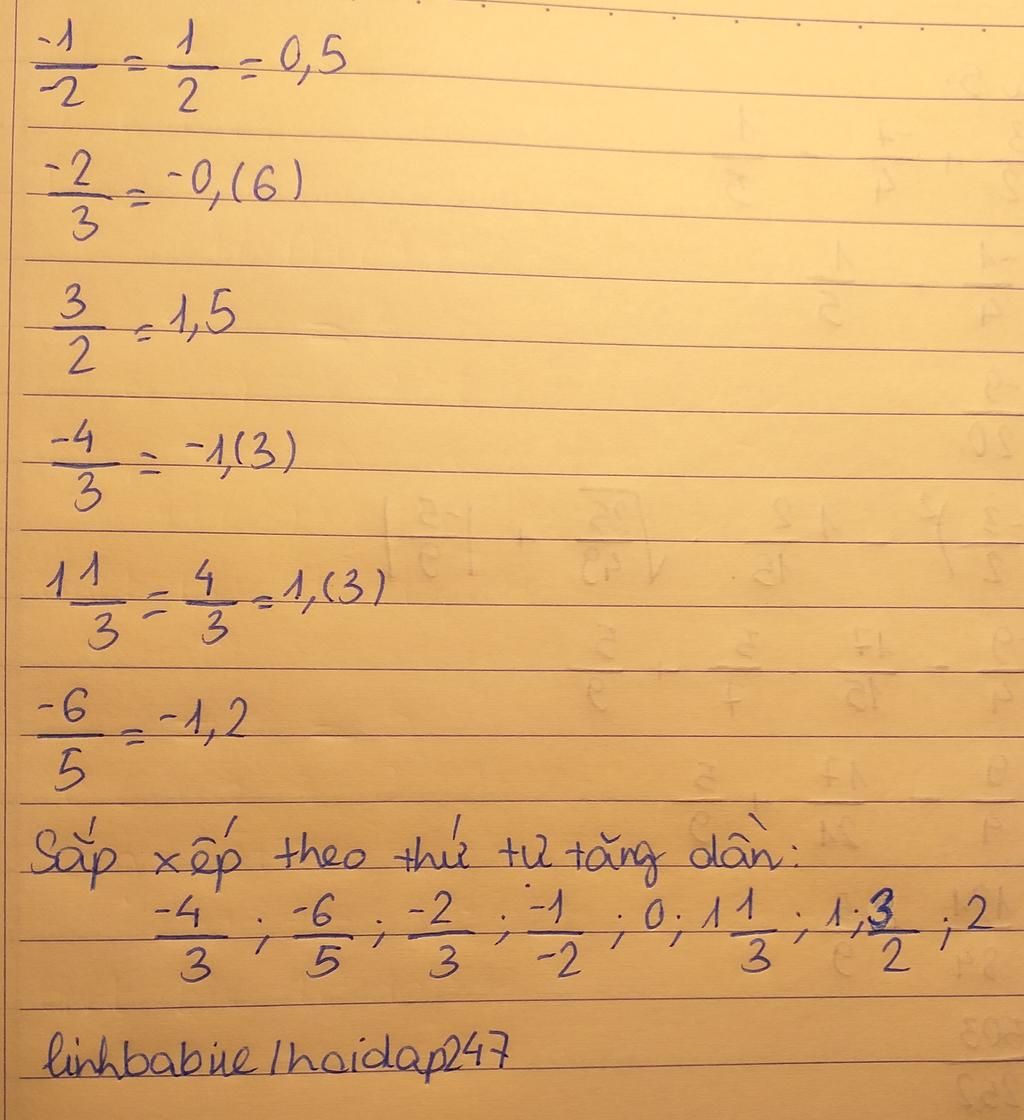 -1/-2 = 1/2 = 0,5
-2/3 = -0,(6)
3/2 = 1,5
-4/3 = -1,(3)
1 1/3 = 4/3 = 1,(3)
-6/5 = -1,2
Sắp xếp theo thứ tự tăng dần:
-4/3 ; -6/5 ; -2/3 ; -1/-2 ; 0 ; 1 1/3 ; 1 ; 3/2 ; 2
linhbabie/hoidap247